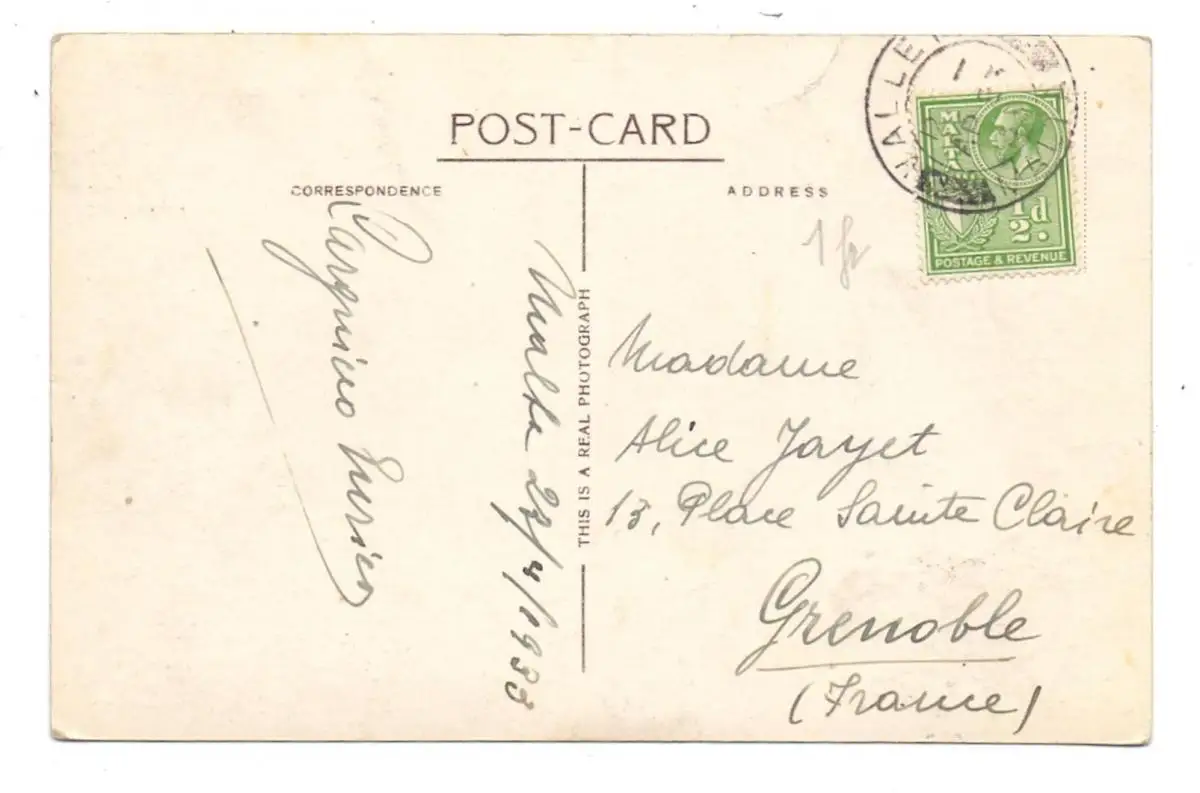 POST-CARD
CORRESPONDENCE
ADDRESS
VALLE
MALTA
1/2d.
POSTAGE & REVENUE
1 fr
THIS IS A REAL PHOTOGRAPH
Malta 23/4/1933
Madame
Alice Jayet
13, Place Sainte Claire
Grenoble
(France)